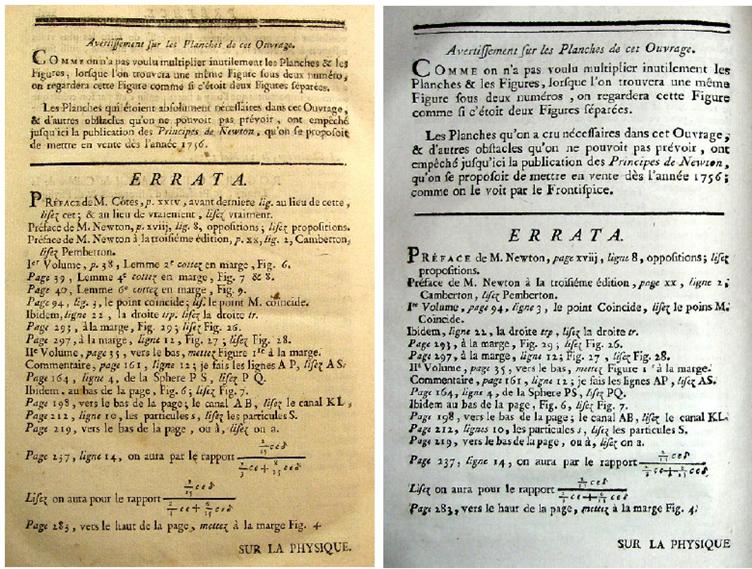 Avertissement sur les Planches de cet Ouvrage.
COMME on n'a pas voulu multiplier inutilement les Planches & les
Figures, lorsque l'on trouvera une même Figure sous deux numéro,
on regardera cette Figure comme si c'étoit deux Figures séparées.
Les Planches qui étoient absolument nécessaires dans cet Ouvrage,
& d'autres obstacles qu'on ne pouvoit pas prévoir, ont empêché
jusqu'ici la publication des Principes de Newton, qu'on se proposoit
de mettre en vente dès l'année 1756.
ERRATA.
PRÉFACE de M. Côtes, p. xxiv, avant derniere lig. au lieu de cette,
lisez cet; & au lieu de vraiement, lisez vraiment.
Préface de M. Newton, p. xviij, lig. 8, oppositions; lisez propositions.
Préface de M. Newton à la troisiéme édition, p. xx, lig. 2, Camberton,
lisez Pemberton.
Ier Volume, p. 38, Lemme 2e cottez en marge, Fig. 6.
Page 39, Lemme 4e cottez en marge, Fig. 7 & 8.
Page 40, Lemme 6e cottez en marge, Fig. 9.
Page 94, lig. 3, le point coincide; lis. le point M. coincide.
Ibidem, ligne 22, la droite trp. lisez la droite tr.
Page 293, à la marge, Fig. 29; lisez Fig. 26.
Page 297, à la marge, ligne 12, Fig. 27; lisez Fig. 28.
IIe Volume, page 35, vers le bas, mettez Figure 1re à la marge.
Commentaire, page 161, ligne 12; je fais les lignes A P, lisez A S.
Page 164, ligne 4, de la Sphere P S, lisez P Q.
Ibidem. au bas de la page, Fig. 6; lisez Fig. 7.
Page 198, vers le bas de la page; le canal AB, lisez le canal KL,
Page 212, ligne 10, les particules, lisez les particules S.
Page 219, vers le bas de la page, ou à, lisez on a.
Page 237, ligne 14, on aura par le rapport
Lisez on aura pour le rapport
Page 283, vers le haut de la page, mettez à la marge Fig. 4
SUR LA PHYSIQUE.
Avertissement sur les Planches de cet Ouvrage.
COMME on n'a pas voulu multiplier inutilement les
Planches & les Figures, lorsque l'on trouvera une même
Figure sous deux numéros, on regardera cette Figure
comme si c'étoit deux Figures séparées.
Les Planches qu'on a cru nécessaires dans cet Ouvrage,
& d'autres obstacles qu'on ne pouvoit pas prévoir, ont
empêché jusqu'ici la publication des Principes de Newton,
qu'on se proposoit de mettre en vente dès l'année 1756;
comme on le voit par le Frontispice.
ERRATA.
PRÉFACE de M. Newton, page xvij, ligne 8, oppositions; lisez
propositions.
Préface de M. Newton à la troisiéme édition, page xx, ligne 2,
Camberton, lisez Pemberton.
Ie Volume, page 94, ligne 3, le point Coincide, lisez le poins M.
Coincide.
Ibidem, ligne 22, la droite trp, lisez la droite tr.
Page 293, à la marge, Fig. 29; lisez Fig. 26.
Page 297, à la marge, ligne 12; Fig. 27, lisez Fig. 28.
IIe Volume, page 35, vers le bas, mettez Figure 1 à la marge.
Commentaire, page 161, ligne 12; je fais les lignes AP, lisez AS.
Page 164, ligne 4, de la Sphere PS, lisez PQ.
Ibidem au bas de la page, Fig. 6, lisez Fig. 7.
Page 198, vers le bas de la page; le canal AB, lisez le canal KL.
Page 212, lignes 10, les particules s, lisez les particules S.
Page 219, vers le bas de la page, ou à, lisez on a.
Page 237, ligne 14, on aura par le rapport
Lisez on aura pour le rapport
Page 283, vers le haut de la page, mettez à la marge Fig. 4.
SUR LA PHYSIQUE